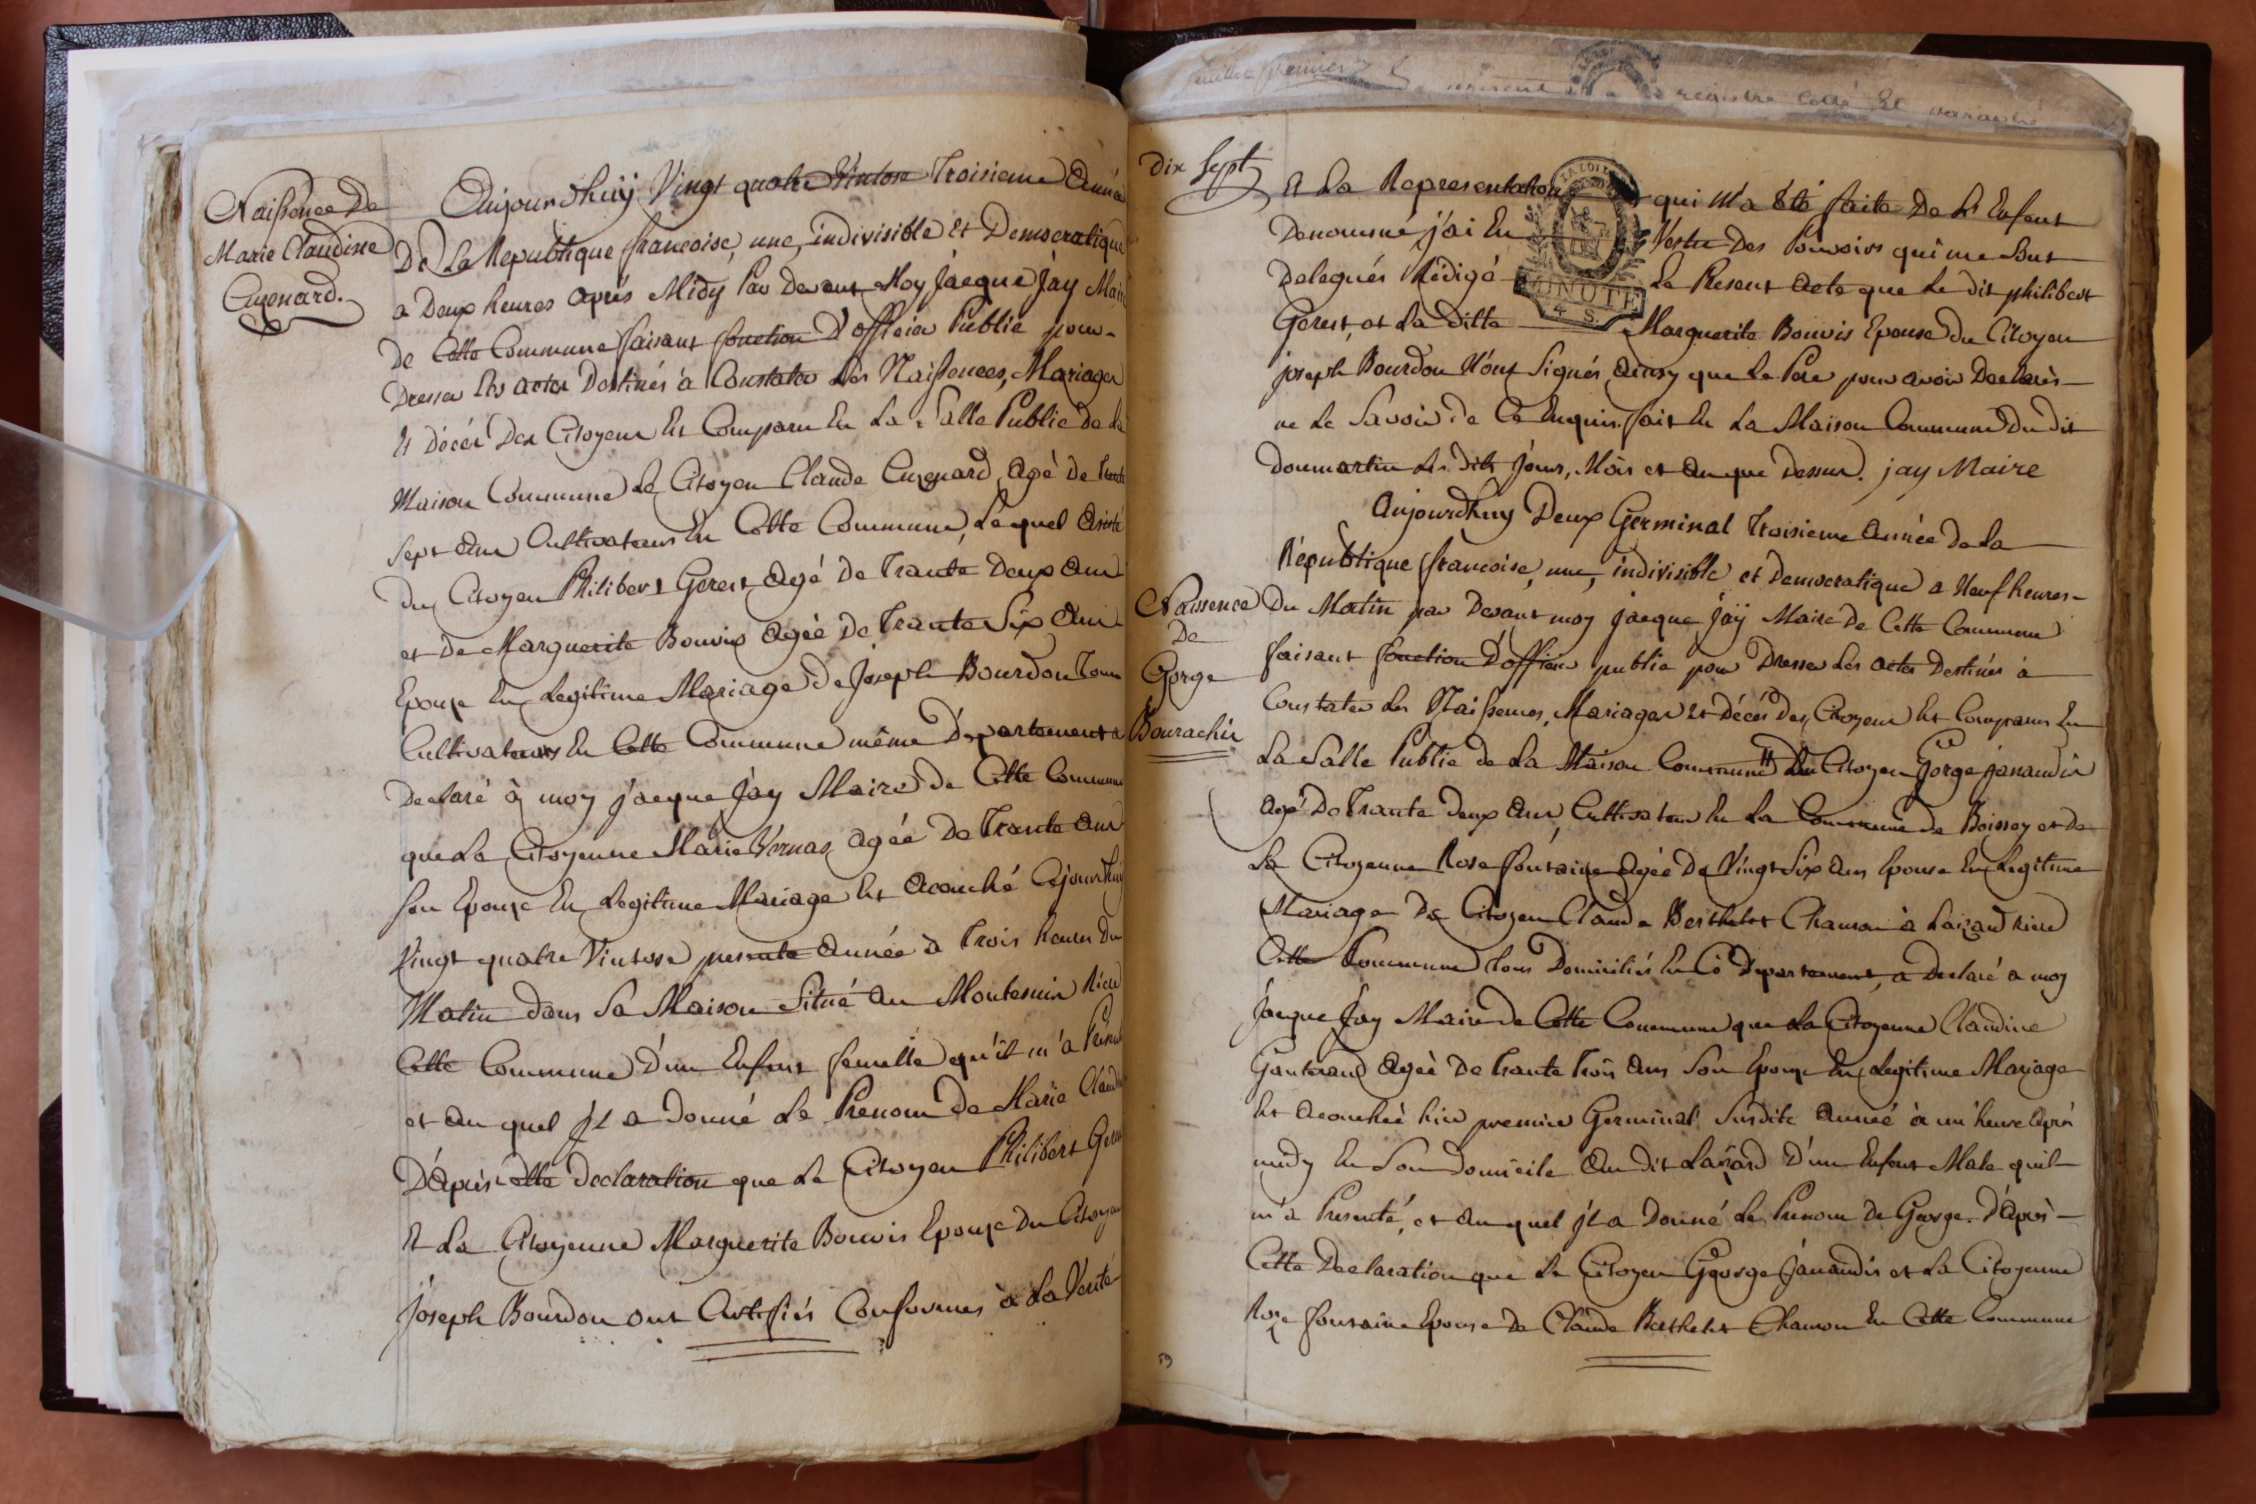 Naissence De
Marie Claudine
Cugnard.
Aujourdhuÿ Vingt quatre Vintose Troisieme Année
De La Republique francoise, une, indivisible Et Democratique
a Deux heures après Midÿ Par Devant Moy Jacque Jay Mair
de Cette Commune faisant fonction D'officier Public pour
Dresser Les actes Destinés à Constater Les Naissences, Mariages
Et décés Des Citoyens Est Comparu En La Salle Public de la
Maison Commune Le Citoyen Claude Cugnard, agé de trente
Sept ans Cultivateurs En Cette Commune, Lequel assisté
du Citoyen Philibert Gerest agé de Trante Deux ans
et De Marguerite Bouvis agée De Trante Six ans
Epouze En Legitime Mariage de Joseph Bourdon Tous
Cultivateurs En Cette Commune même Département a
Declaré à moy Jacque Jay Maire de Cette Commune
que La Citoyenne Marie Vernas agée de Trante ans
Son Epouze En Legitime Mariage Est acouché Cejourdhuy
Vingt quatre Vintose presente année à Trois heures Du
Matin dans Sa Maison Situé au Montesuir Riere
Cette Commune D'un Enfant femelle qu'il m'a Présenté
et au quel Jl a Donné Le Prenom de Marie Claudine
D'après cette Declaration que Le Citoyen Philibert Gerest
Et La Citoyenne Marguerite Bouvis Epouze Du Citoyen
Joseph Bourdon ont Certifiés Conformes à La Vérité
Dix Sept
registre Cotté Et
LA LOI
MINUTE
4 S.
Et La Representation qui M'a Eté faite De L'Enfant
Denommé j'ai En Vertu Des Pouvoirs qui me Sont
Delegués Rédigé Le Present acte que Le dit philibert
Gerest, et La Ditte Marguerite Bouvis Epouse du Citoyen
joseph Bourdon N'ont Signés, ainsy que Le Pere pour avoir Declarés
ne Le Savoir de Ce Enquis. fait En La Maison Commune Du dit
Donmartin Les Dits Jours, Mois et an que Dessus. jay Maire
Naissence
De
Gorge
Bourachin
Aujourdhuy Deux Germinal Troisieme année de la
République francoise, une, indivisible et Democratique a Neuf heures
Du Matin par Devant moy jacque Jaÿ Maire De Cette Commune
faisant fonction D'officier public pour Dresser Les actes Destinés à
Constater Les Naissences, Mariages Et Décés Des Citoyens Est Comparus En
La Salle Public de La Maison Commune Le Citoyen Gorge janaudin
agé De Trante Deux ans, Cultivateur En La Commune de Boissey et de
La Citoyenne Rose fontaine agée De Vingt Six ans Epouse En Legitime
Mariage De Citoyen Claude Berthelet Chanon à Laizard Riere
Cette Commune Tous Domiciliés En Ce Département, a Declaré a moy
Jacque Jay Maire De Cette Commune que La Citoyenne Claudine
Gauteraud Agée De trante Trois ans Son Epouze En Legitime Mariage
Est Acouchée hier premier Germinal Susdite année à un heure après
midy En Son domicile au dit Laizard D'un Enfant Male qu'il
m'a Presenté, et au quel jl a Donné Le Prenom de George. D'Après
Cette Declaration que Le Citoyen George Janaudin et La Citoyenne
Roze fontaine Epouse de Claude Berthelet Chanon En Cette Commune